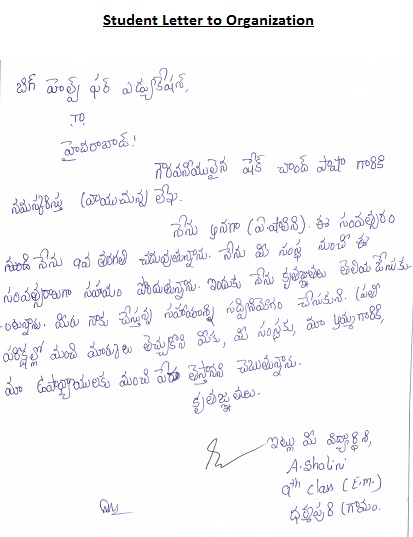 Student Letter to Organization
బిగ్ హెల్ప్ ఫర్ ఎడ్యుకేషన్,
To
హైదరాబాద్!
గౌరవనీయులైన షేక్ చాంద్ పాషా గారికి
నమస్కరిస్తు వ్రాయుచున్న లేఖ.
నేను అనగా (ఎ.షాలిని). ఈ సంవత్సరం
నుండి నేను 9వ తరగతి చదువుతున్నాను. నేను మీ సంస్థ నుంచి ఈ
సంవత్సరాలుగా సహాయం పొందుతున్నాను. ఇందుకు నేను కృతజ్ఞతలు తెలియచేసుకుంటున్నాను. మీరు నాకు చేస్తున్న సహాయాన్ని సద్వినియోగం చేసుకుని. ప్రతీ
పరీక్షల్లో మంచి మార్కులు తెచ్చుకొని మీకు, మీ సంస్థకు, మా అమ్మగారికి,
మా ఉపాధ్యాయులకు మంచి పేరు తెస్తానని చెబుతున్నాను.
కృతజ్ఞతలు.
ఇట్లు మీ విద్యార్థిని,
A. Shalini
9th class (E.m.)
ధర్మాపురి గ్రామం.